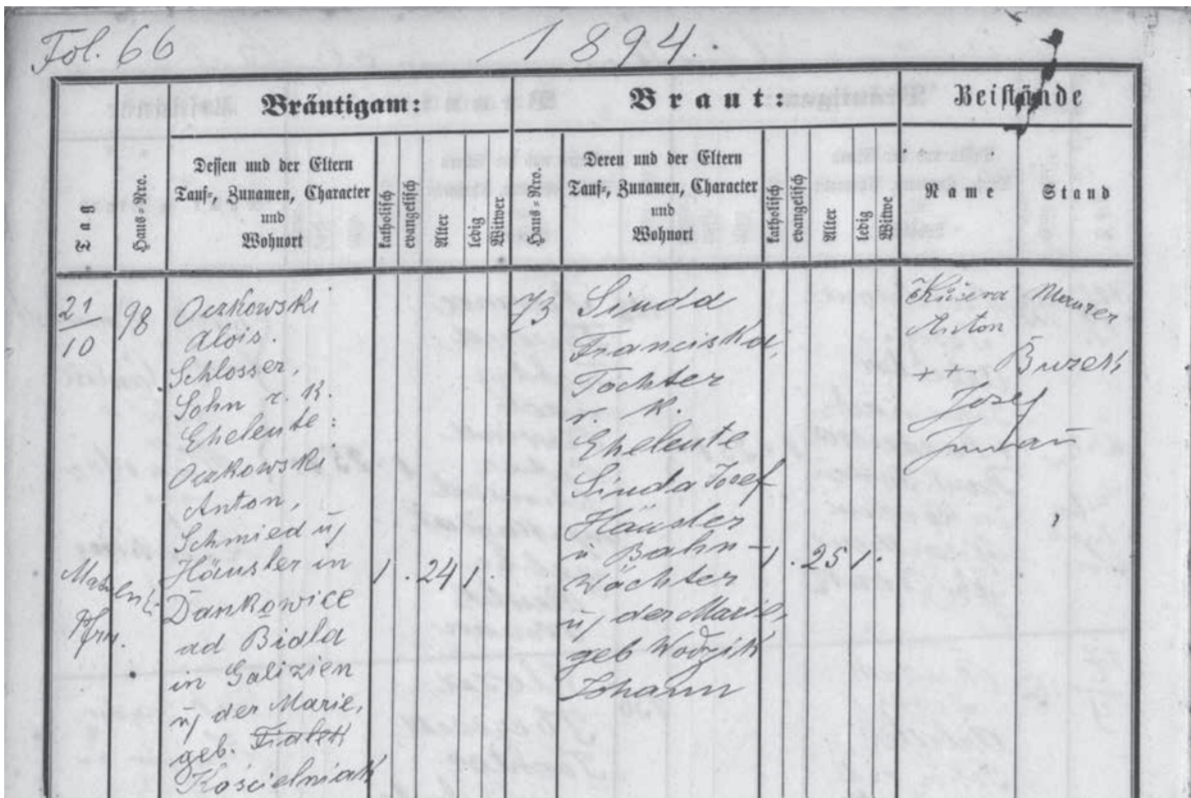 Fol. 66
1894.
Bräutigam:
Braut:
Beistände
Tag
Haus-Nro.
Dessen und der Eltern
Tauf-, Zunamen, Character
und
Wohnort
katholisch
evangelisch
Alter
ledig
Witwer
Haus-Nro.
Deren und der Eltern
Tauf-, Zunamen, Character
und
Wohnort
katholisch
evangelisch
Alter
ledig
Witwe
Name
Stand
21/10
98
Oczkowski
Alois.
Schlosser,
Sohn r. k.
Eheleute:
Oczkowski
Anton,
Schmied u,
Häusler in
Dankowice
ad Biala
in Galizien
u, der Marie,
geb.
Kościelniak
1. 24 1.
73
Sinda
Franciska,
Tochter
r. k.
Eheleute
Sinda Josef
Häusler
u Bahn-
Wächter
u, der Marie,
geb Wodzik
Johann
1. 25 1.
Kučera Maurer
Anton
++ Buzek
Josef